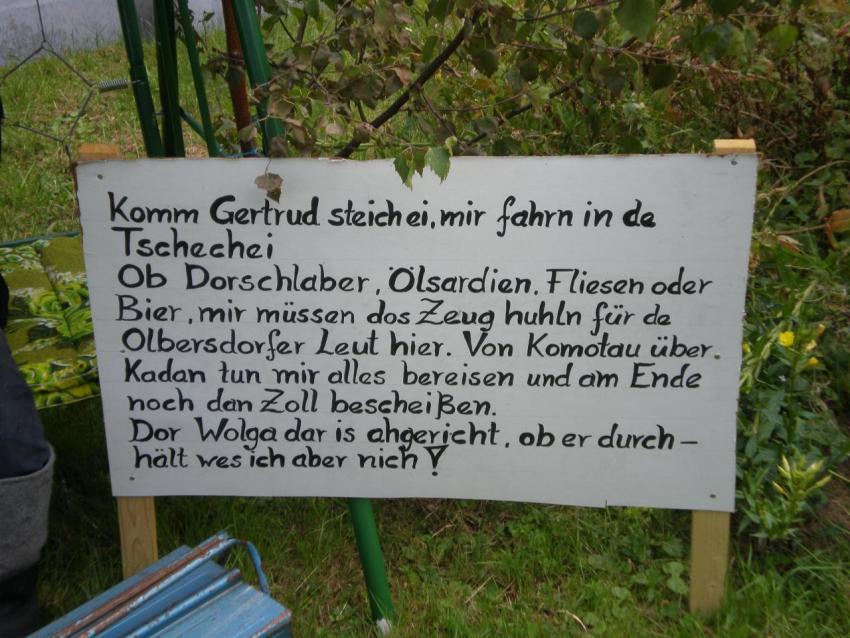 Komm Gertrud steich ei, mir fahrn in de
Tschechei
Ob Dorschlaber, Ölsardien, Fliesen oder
Bier, mir müssen dos Zeug huhln für de
Olbersdorfer Leut hier. Von Komotau über
Kadan tun mir alles bereisen und am Ende
noch dan Zoll bescheißen.
Dor Wolga dar is ahgericht, ob er durch-
hält wes ich aber nich!